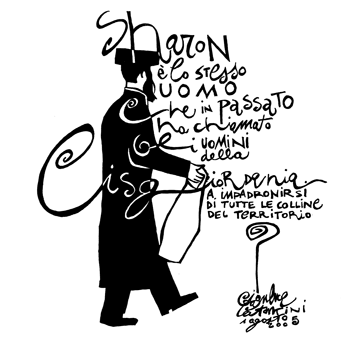 Sharon
è lo stesso
UOMO
che in PASSATO
ha chiamato
gli UOMINI
della
Cisgiordania
A IMPADRONIRSI
DI TUTTE LE COLLINE
DEL TERRITORIO
agosto
2005